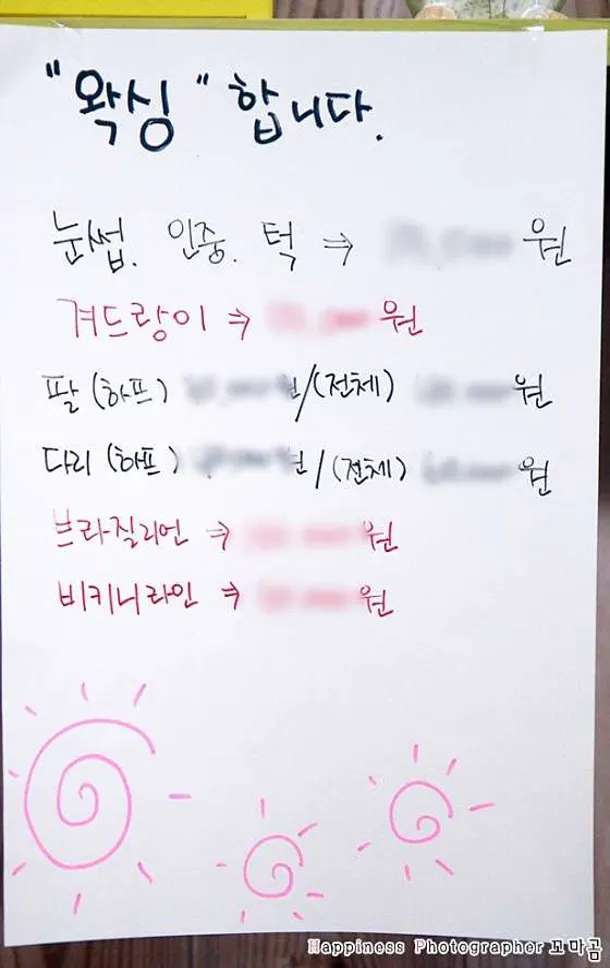 "왁싱" 합니다.
눈썹. 인중. 턱 ⇒ 원
겨드랑이 ⇒ 원
팔 (하프) 원/(전체) 원
다리 (하프) 원/(전체) 원
브라질리언 ⇒ 원
비키니라인 ⇒ 원
Happiness Photographer 꼬마곰